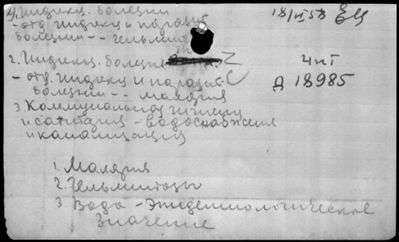 1. Инфекц. болезни
- отд. инфекц и паразит.
болезни - - гельминт
18/VI 58
2. Инфекц. болезни
- отд. инфекц и паразит
болезни - - малярия
4 п1
Д 18985
3 Коммунальная гигиена
и санитария - водоснабжение
и канализация
1. Малярия
2. Гельминтозы
3 Вода - эпидемиологическое
значение